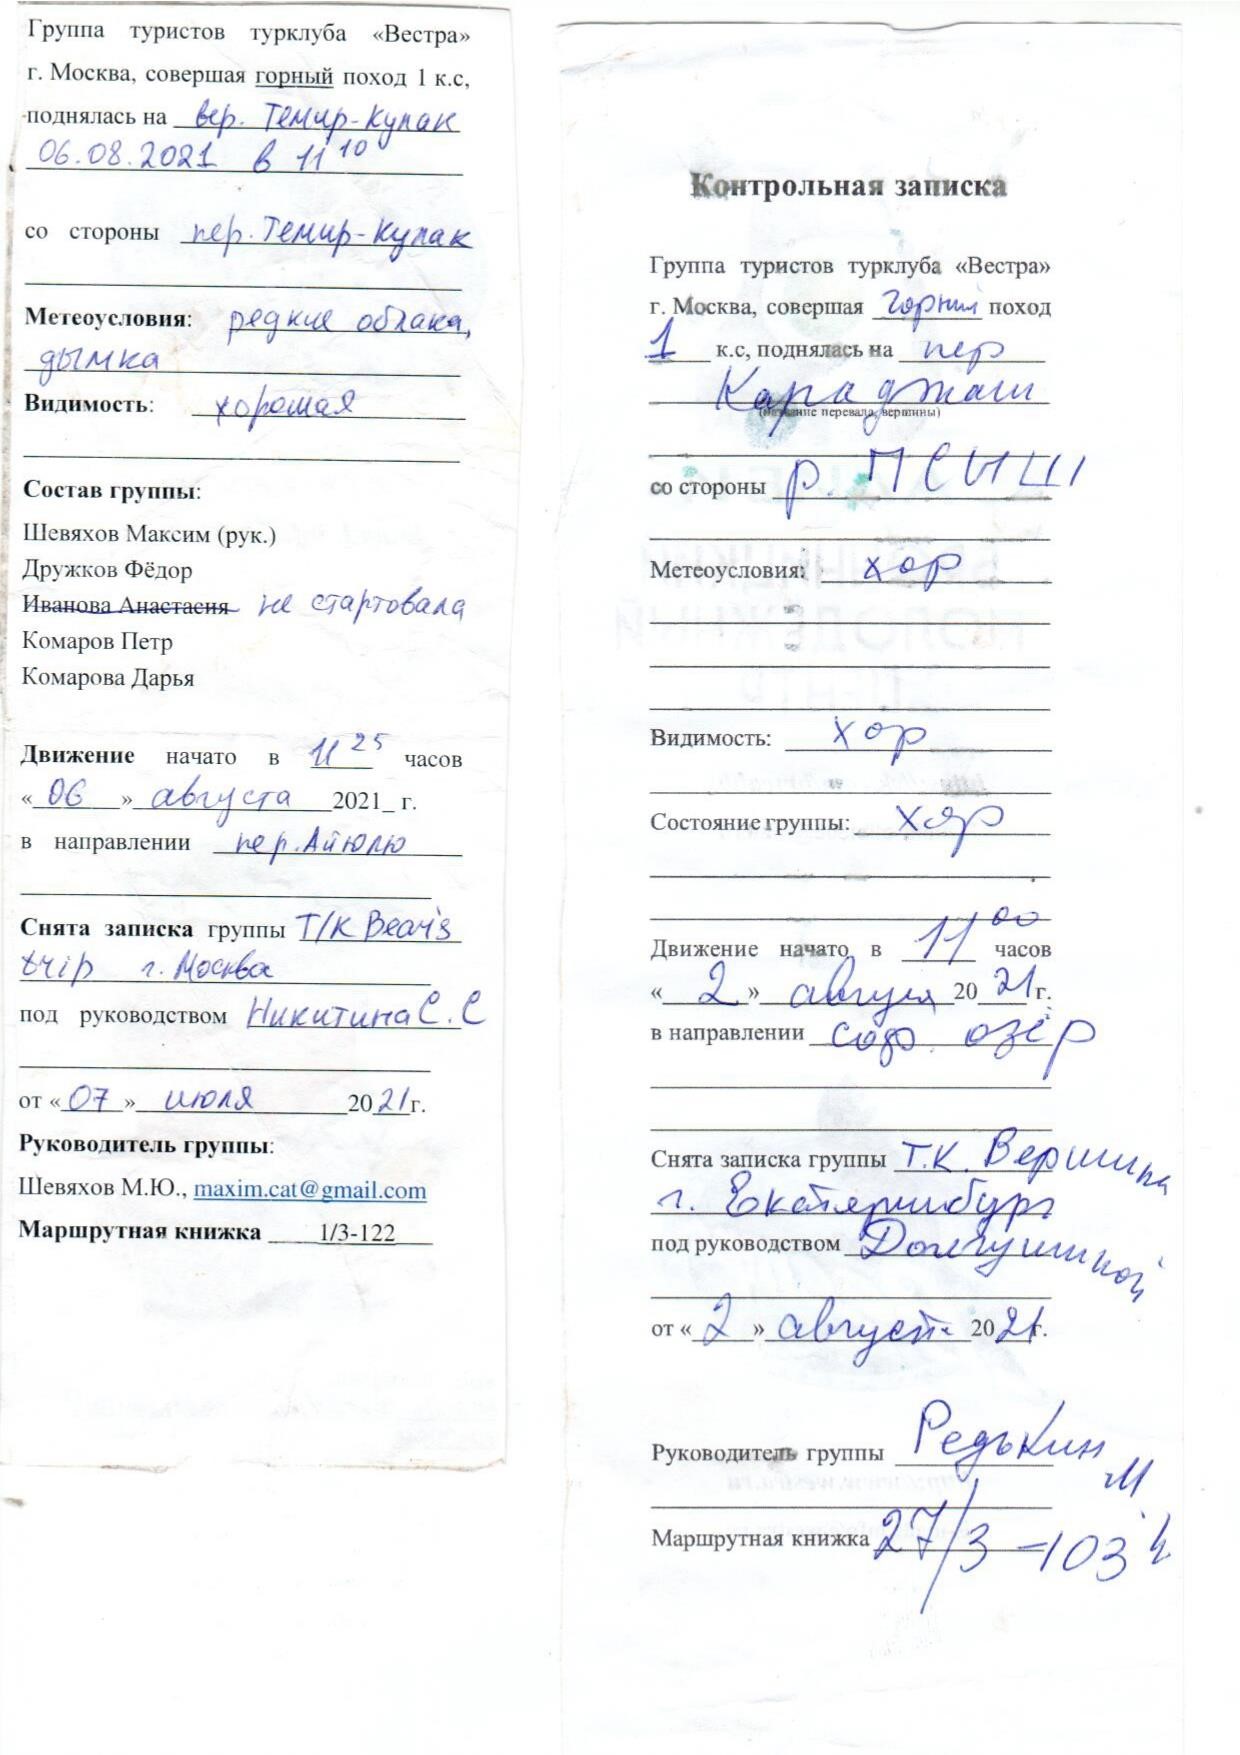 Группа туристов турклуба «Вестра»
г. Москва, совершая горный поход 1 к.с,
поднялась на вер. Темир-Кулак
06.08.2021 в 11 10
со стороны пер. Темир-Кулак
Метеоусловия: редкие облака,
дымка
Видимость: хорошая
Состав группы:
Шевяхов Максим (рук.)
Дружков Фёдор
Иванова Анастасия не стартовала
Комаров Петр
Комарова Дарья
Движение начато в 11 25 часов
«06» августа 2021_ г.
в направлении пер. Айюлю
Снята записка группы Т/К Bear's
trip г. Москва
под руководством Никитина С.С
от «07» июля 2021г.
Руководитель группы:
Шевяхов М.Ю., maxim.cat@gmail.com
Маршрутная книжка 1/3-122
Контрольная записка
Группа туристов турклуба «Вестра»
г. Москва, совершая горный поход
1 к.с, поднялась на пер
Кара джаш
(название перевала, вершины)
со стороны р. Псыш
Метеоусловия: хор
Видимость: хор
Состояние группы: хор
Движение начато в 11 00 часов
«2» августа 2021 г.
в направлении соф. озёр
Снята записка группы Т.К. Вершина
г. Екатеринбург
под руководством Долгушиной
от «2» август 2021г.
Руководитель группы Редькин М
Маршрутная книжка 27/3-103